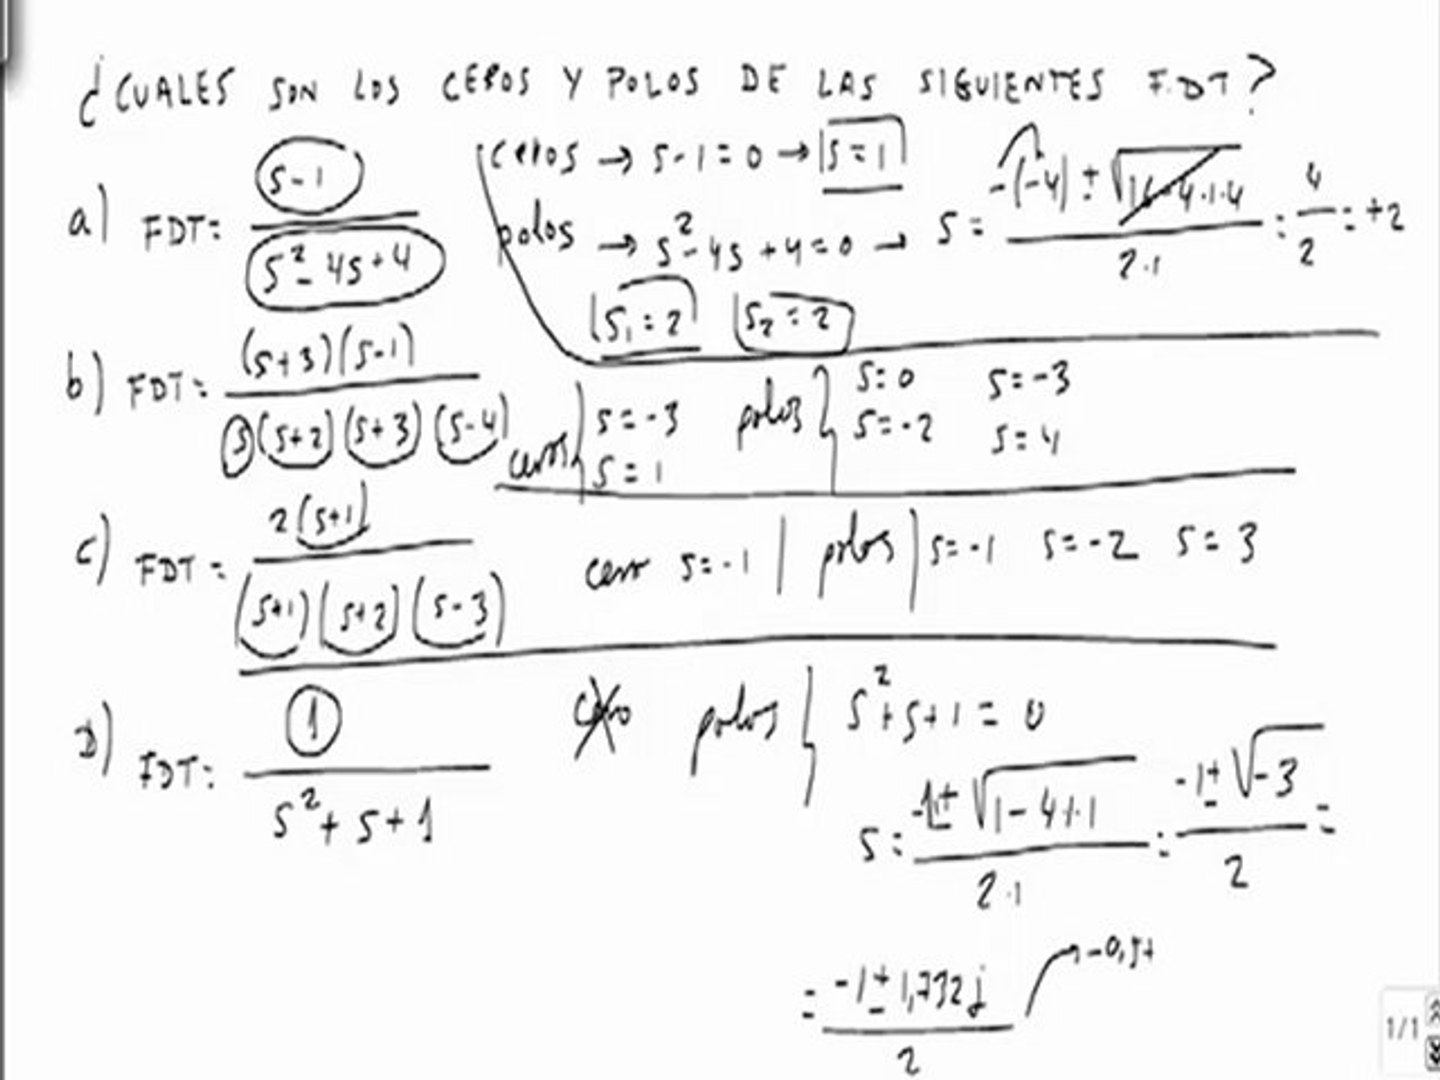 ¿CUALES SON LOS CEROS Y POLOS DE LAS SIGUIENTES F.DT?
a) FDT = (s-1) / (s² - 4s + 4)
ceros → s-1 = 0 → s = 1
polos → s² - 4s + 4 = 0 → s = (-(-4) ± √(16-4·1·4)) / (2·1) = 4/2 = +2
s₁ = 2 s₂ = 2
b) FDT = (s+3)(s-1) / s(s+2)(s+3)(s-4)
ceros s = -3 s = 1
polos s = 0 s = -3 s = -2 s = 4
c) FDT = 2(s+1) / (s+1)(s+2)(s-3)
cero s = -1 polos s = -1 s = -2 s = 3
D) FDT = 1 / (s² + s + 1)
cero polos s² + s + 1 = 0
s = (-1 ± √(1-4·1·1)) / (2·1) = (-1 ± √-3) / 2 =
= (-1 ± 1,732j) / 2 → -0,5+
1/1